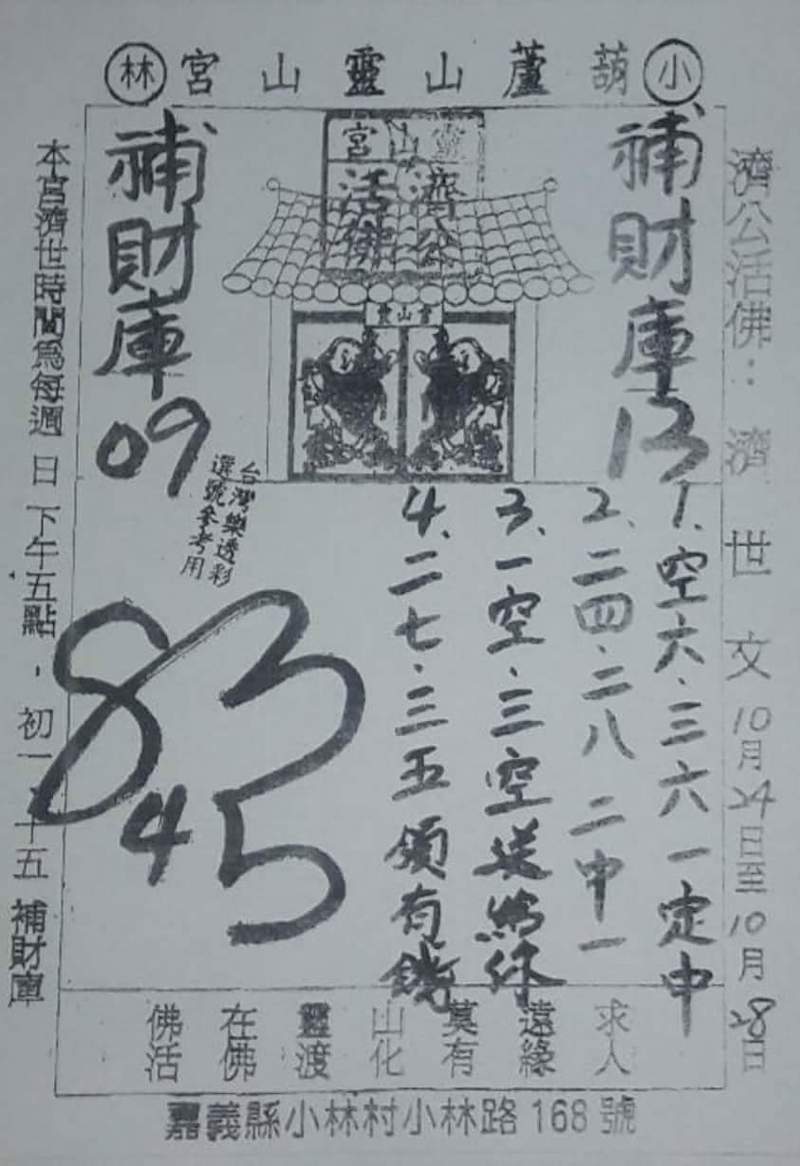 小葫蘆山靈山宮林
濟公活佛：濟世文10月24日至10月28日
補財庫13
靈山宮
濟公
活佛
靈山宮
補財庫09
1、空六．三六一定中
2、二四．二八 二中一
3、一空．三空送給你
4、二七．三五領有錢
台灣樂透彩
選號參考用
83
45
求人
遠緣
莫有
山化
靈渡
在佛
佛活
本宮濟世時間為每週日下午五點，初一、十五補財庫
嘉義縣小林村小林路168號